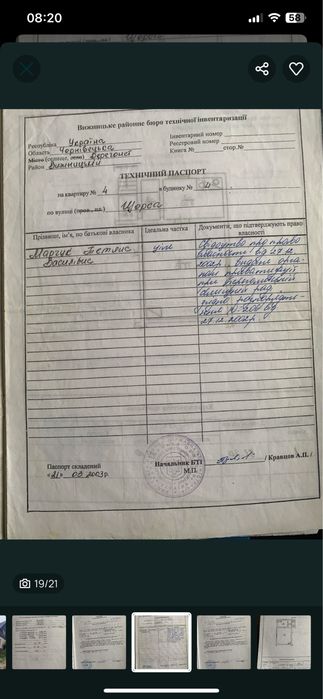 08:20
58
Вижницьке районне бюро технічної інвентаризації
Республіка Україна
Область Чернівецька
Місто (селище, село) Берегомет
Район Вижницький
Інвентарний номер
Реєстровий номер
Книга № стор.№
ТЕХНІЧНИЙ ПАСПОРТ
на квартиру № 4 в будинку №
по вулиці (пров., пл.) Щорса
Прізвище, ім'я, по батькові власника
Ідеальна частка
Документи, що підтверджують право власності
Василівис
ціле
Свідоцтво про право
власності від 27.12.
2002р. видане орга-
ном приватизації
при
селищній раді
згідно розпорядже-
ння № 206 від
27.12.2002р.
Паспорт складений
«21» 03 2003р.
Начальник БТІ
М.П.
/ Кравцов А.П. /
19/21